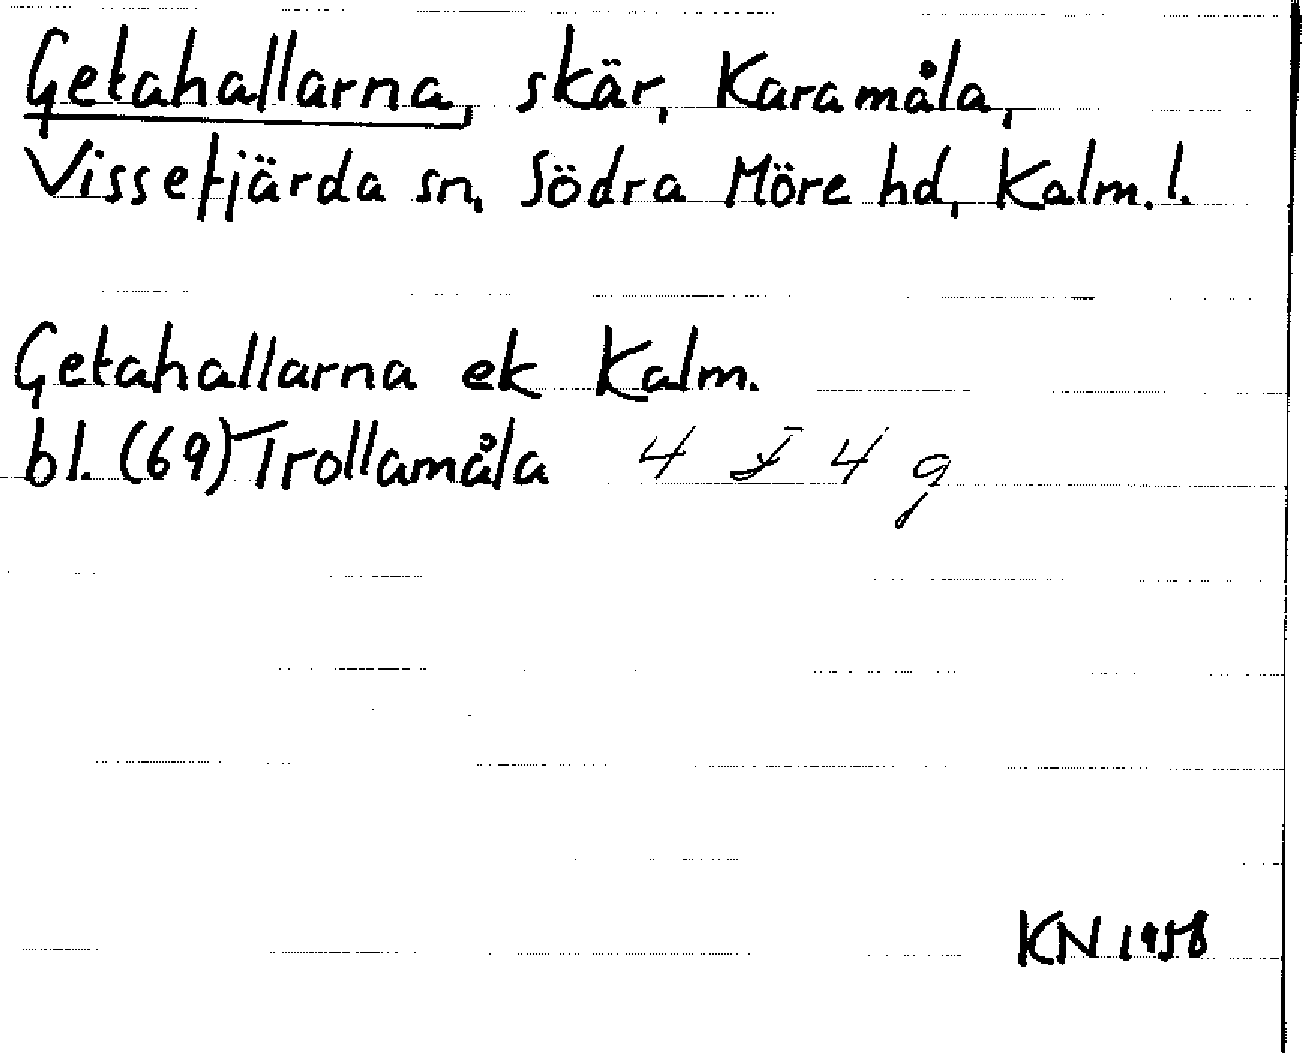 Getahallarna, skär, Karamåla,
Vissefjärda sn, Södra Möre hd, Kalm. l.
Getahallarna ek Kalm.
bl. (69) Trollamåla 4 F 4 g
KN 1958